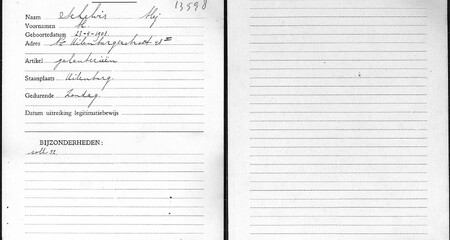 13598
Naam Schelvis Mej
Voornamen M.
Geboortedatum 23-5-1903
Adres Nw Uilenburgerstraat
Artikel galanterieën
Staanplaats Uilenburg.
Gedurende Zondag.
Datum uitreiking legitimatiebewijs
BIJZONDERHEDEN: